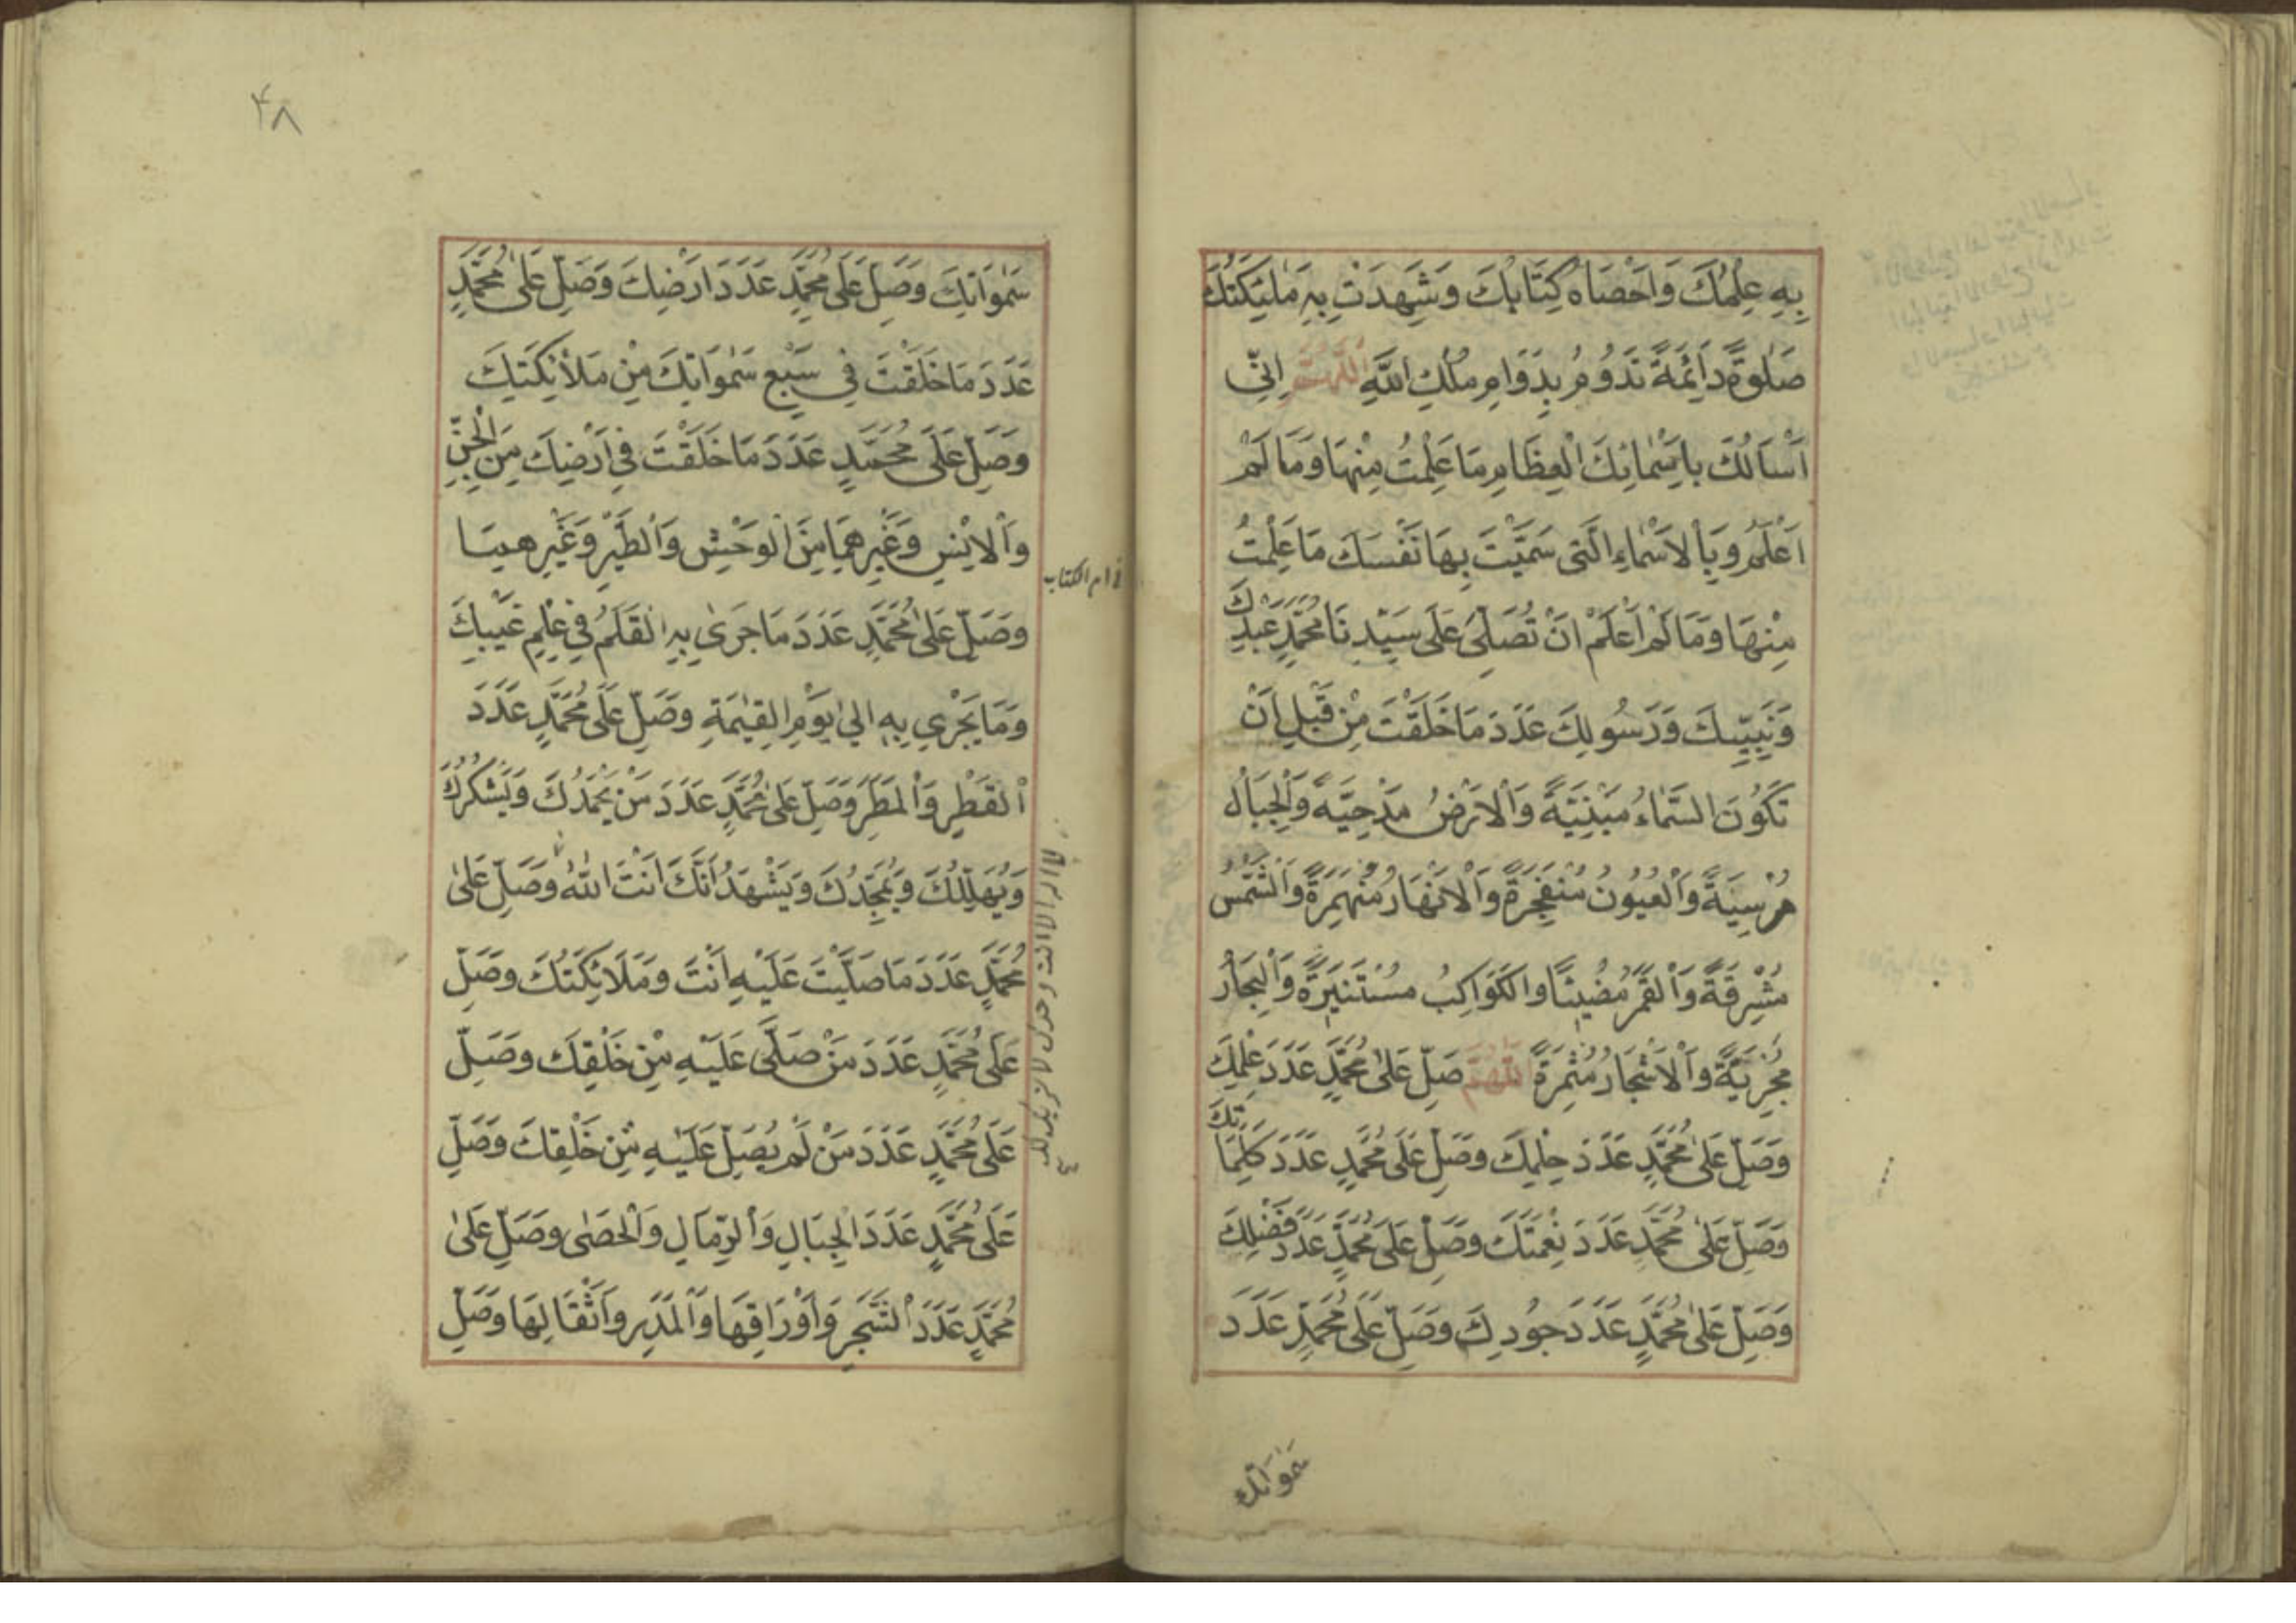 بِهِ عِلْمُكَ وَاَحْصَاهُ كِتَابُكَ وَشَهِدَتْ بِهِ مَلٰئِكَتُكَ
صَلٰوةً دَائِمَةً تَدُومُ بِدَوَامِ مُلْكِ اللّٰهِ اَللّٰهُمَّ اِنِّى
اَسْاَلُكَ بِاَسْمَائِكَ الْعِظَامِ مَا عَلِمْتُ مِنْهَا وَمَا لَمْ
اَعْلَمُ وَبِالْاَسْمَاءِ الَّتِى سَمَّيْتَ بِهَا نَفْسَكَ مَا عَلِمْتُ
مِنْهَا وَمَا لَمْ اَعْلَمْ اَنْ تُصَلِّىَ عَلَى سَيِّدِنَا مُحَمَّدٍ عَبْدِكَ
وَنَبِيِّكَ وَرَسُولِكَ عَدَدَ مَا خَلَقْتَ مِنْ قَبْلِ اَنْ
تَكُوْنَ السَّمَاءُ مَبْنِيَّةً وَالْاَرْضُ مَدْحِيَّةً وَالْجِبَالُ
مُرْسِيَةً وَالْعُيُونُ مُنْفَجِرَةً وَالْاَنْهَارُ مُنْهَمِرَةً وَالشَّمْسُ
مُشْرِقَةً وَالْقَمَرُ مُضِيْئًا وَالْكَوَاكِبُ مُسْتَنِيْرَةً وَالْبِحَارُ
مُجْرِيَةً وَالْاَشْجَارُ مُثْمِرَةً اَللّٰهُمَّ صَلِّ عَلٰى مُحَمَّدٍ عَدَدَ عِلْمِكَ
وَصَلِّ عَلٰى مُحَمَّدٍ عَدَدَ حِلْمِكَ وَصَلِّ عَلٰى مُحَمَّدٍ عَدَدَ كَلِمَاتِكَ
وَصَلِّ عَلٰى مُحَمَّدٍ عَدَدَ نِعْمَتِكَ وَصَلِّ عَلٰى مُحَمَّدٍ عَدَدَ فَضْلِكَ
وَصَلِّ عَلٰى مُحَمَّدٍ عَدَدَ جُودِكَ وَصَلِّ عَلٰى مُحَمَّدٍ عَدَدَ
سَمٰوَاتِكَ
۴۸
سَمٰوَاتِكَ وَصَلِّ عَلَى مُحَمَّدٍ عَدَدَ اَرْضِكَ وَصَلِّ عَلٰى مُحَمَّدٍ
عَدَدَ مَا خَلَقْتَ فِى سَبْعِ سَمٰوَاتِكَ مِنْ مَلَائِكَتِكَ
وَصَلِّ عَلَى مُحَمَّدٍ عَدَدَ مَا خَلَقْتَ فِى اَرْضِكَ مِنَ الْجِنِّ
وَالْاِنْسِ وَغَيْرِهِمَا مِنَ الْوَحْشِ وَالطَّيْرِ وَغَيْرِهِمَا
وَصَلِّ عَلٰى مُحَمَّدٍ عَدَدَ مَا جَرٰى بِهِ الْقَلَمُ فِى عِلْمِ غَيْبِكَ
وَمَا يَجْرِي بِهِ اِلٰي يَوْمِ الْقِيٰمَةِ وَصَلِّ عَلَى مُحَمَّدٍ عَدَدَ
الْقَطْرِ وَالْمَطَرِ وَصَلِّ عَلٰى مُحَمَّدٍ عَدَدَ مَنْ يَحْمَدُكَ وَيَشْكُرُكَ
وَيُهَلِّلُكَ وَيُمَجِّدُكَ وَيَشْهَدُ اَنَّكَ اَنْتَ اللّٰهُ وَصَلِّ عَلٰى
مُحَمَّدٍ عَدَدَ مَا صَلَّيْتَ عَلَيْهِ اَنْتَ وَمَلَائِكَتُكَ وَصَلِّ
عَلَى مُحَمَّدٍ عَدَدَ مَنْ صَلَّى عَلَيْهِ مِنْ خَلْقِكَ وَصَلِّ
عَلَى مُحَمَّدٍ عَدَدَ مَنْ لَمْ يُصَلِّ عَلَيْهِ مِنْ خَلْقِكَ وَصَلِّ
عَلَى مُحَمَّدٍ عَدَدَ الْجِبَالِ وَالرِّمَالِ وَالْحَصٰى وَصَلِّ عَلٰى
مُحَمَّدٍ عَدَدَ الشَّجَرِ وَاَوْرَاقِهَا وَالْمَدَرِ وَاَثْقَالِهَا وَصَلِّ
ام الكتاب
لا اله الا انت وحدك لا شريك لك